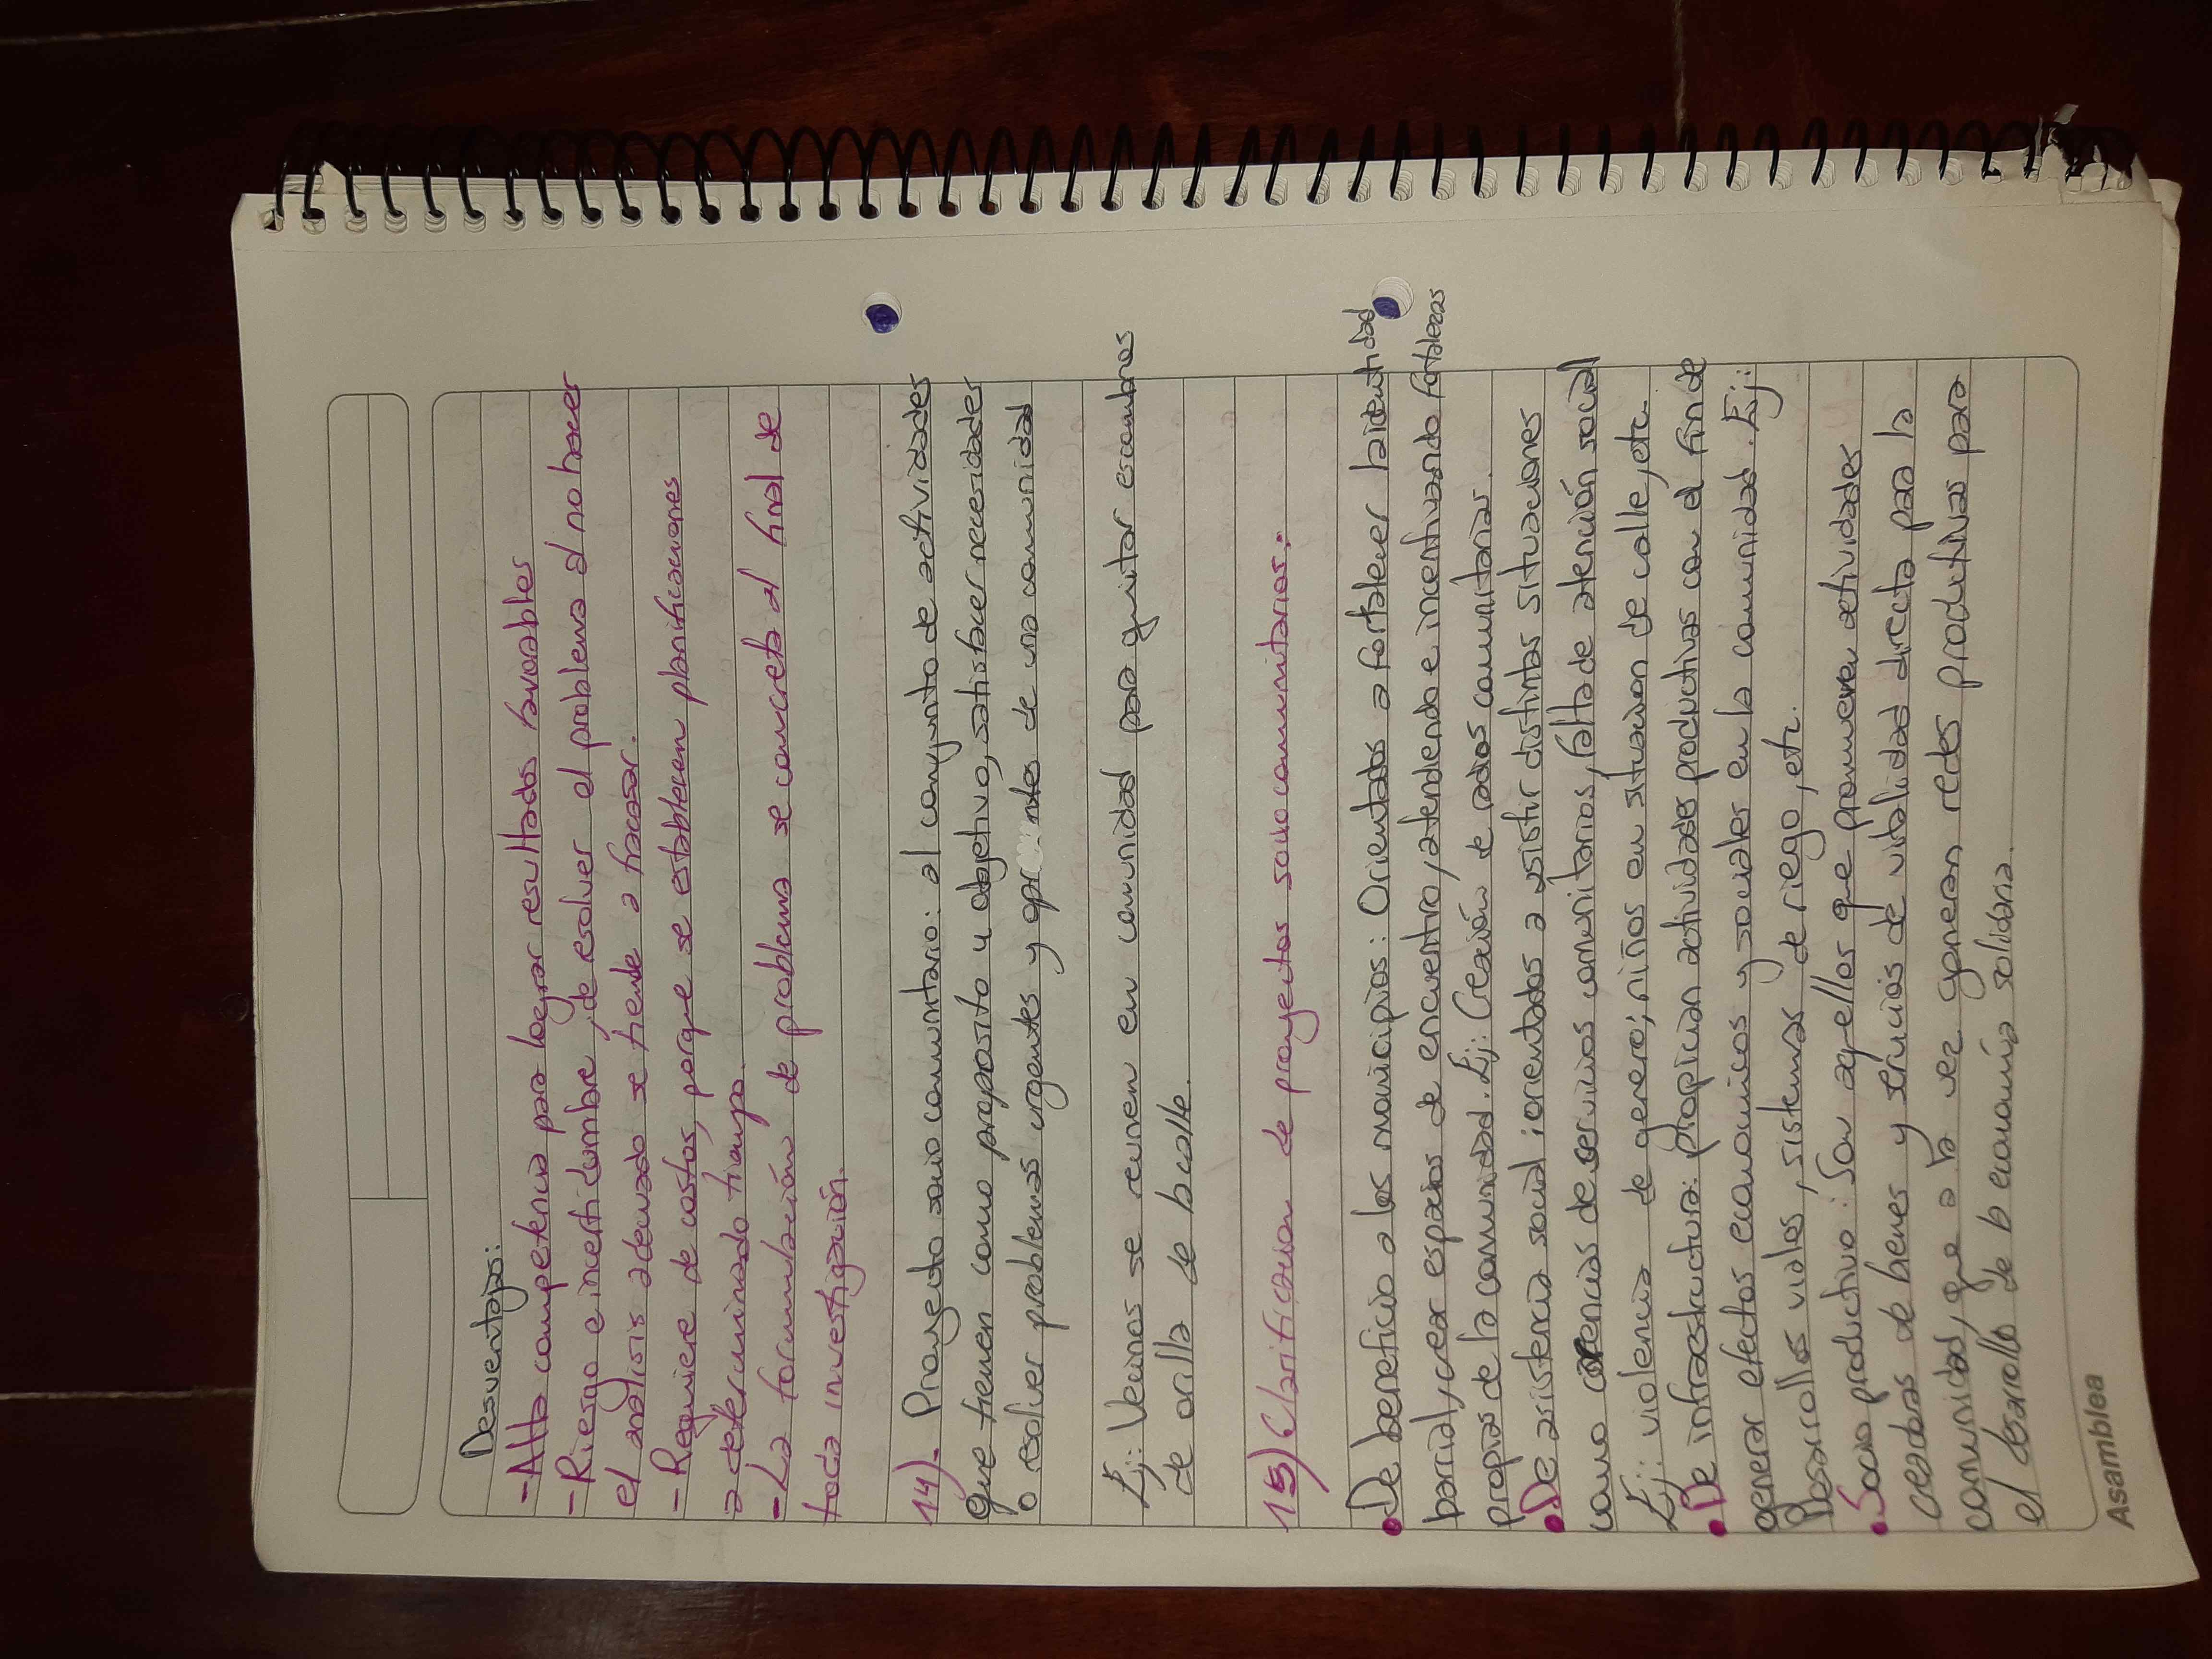 Desventajas:
-Alta competencia para lograr resultados favorables
-Riesgo e incertidumbre, de resolver el problema al no hacer
el analisis adecuado se tiende a fracasar.
-Requiere de costos, porque se establecen planificaciones
a determinado tiempo.
-La formulación de problema se concreta al final de
toda investigación.
14)- Proyecto socio comunitario: al conjunto de actividades
que tienen como proposito u objetivo, satisfacer necesidades
o resolver problemas urgentes y de una comunidad
Ej: Vecinos se reunen en comunidad para quitar escombros
de orilla de la calle.
15) Clasificacion de proyectos socio comunitarios:
•De beneficio a los municipios: Orientados a fortalecer la identidad
barrial, crear espacios de encuentro, atendiendo e incentivando fortalezas
propias de la comunidad. Ej: Creación de radios comunitarias.
•De asistencia social: orientados a asistir distintas situaciones
como carencias de servicios comunitarios, falta de atención social
Ej: violencia de genero; niños en situacion de calle, etc.
•De infraestructura: propician actividades productivas con el fin de
generar efectos economicos y sociales en la comunidad. Ej:
Desarrollos viales, sistemas de riego, etc.
•Socio productivo: Son aquellos que promueven actividades
creadoras de bienes y servicios de utilidad directa para la
comunidad, que a la vez generan redes productivas para
el desarrollo de la economía solidaria.
Asamblea